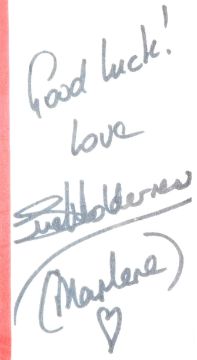 Good luck!
Love
Sue Holderness
(Marlene)
♡